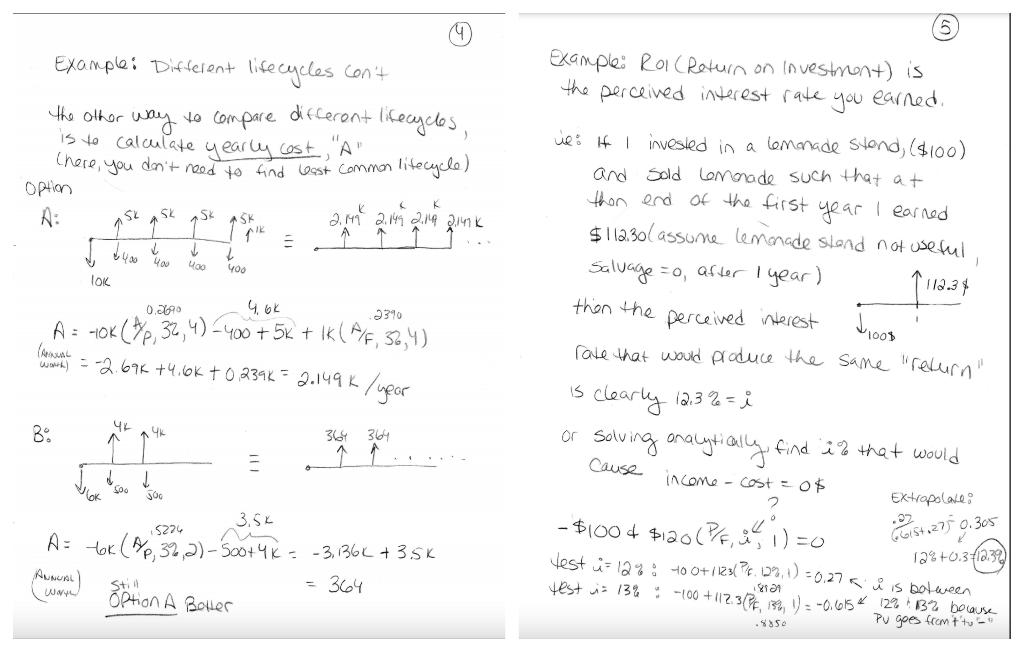 4
Example: Different lifecycles con't
the other way to compare different lifecycles,
is to calculate yearly cost, "A"
(here, you don't need to find least common lifecycle)
Option
A:
5K 5K 5K 5K 1K
400 400 400 400
10K
≡
2.149K 2.149K 2.149K 2.149K
. . .
0.2690 4.6K .2390
A = -10K(A/P, 3%, 4) - 400 + 5K + 1K(A/F, 3%, 4)
(Annual Worth) = -2.69K + 4.6K + 0.239K = 2.149K/year
B:
4K 4K
6K 500 500
≡
364 364 . . . . . .
.5226 3.5K
A = -6K(A/P, 3%, 2) - 500 + 4K = -3.136K + 3.5K
(Annual Worth) = 364
Still
Option A Better
5
Example: ROI (Return on Investment) is
the perceived interest rate you earned.
ie: If I invested in a lemonade stand, ($100)
and sold lemonade such that at
then end of the first year I earned
$112.30 (assume lemonade stand not useful,
Salvage = 0, after 1 year)
112.3$
1
100$
then the perceived interest
rate that would produce the same "return"
is clearly 12.3% = i
or solving analytically, find i% that would
cause income - cost = 0$
?
-$100 + $120(P/F, i%, 1) = 0
Extrapolate:
.27/(.615+.27) = 0.305
12% + 0.3 = 12.3%
test i = 12% : -100 + 112.3(P/F, 12%, 1) = 0.27
.8929
test i = 13% : -100 + 112.3(P/F, 13%, 1) = -0.615
.8850
i is between
12% + 13% because
PV goes from + to "-"